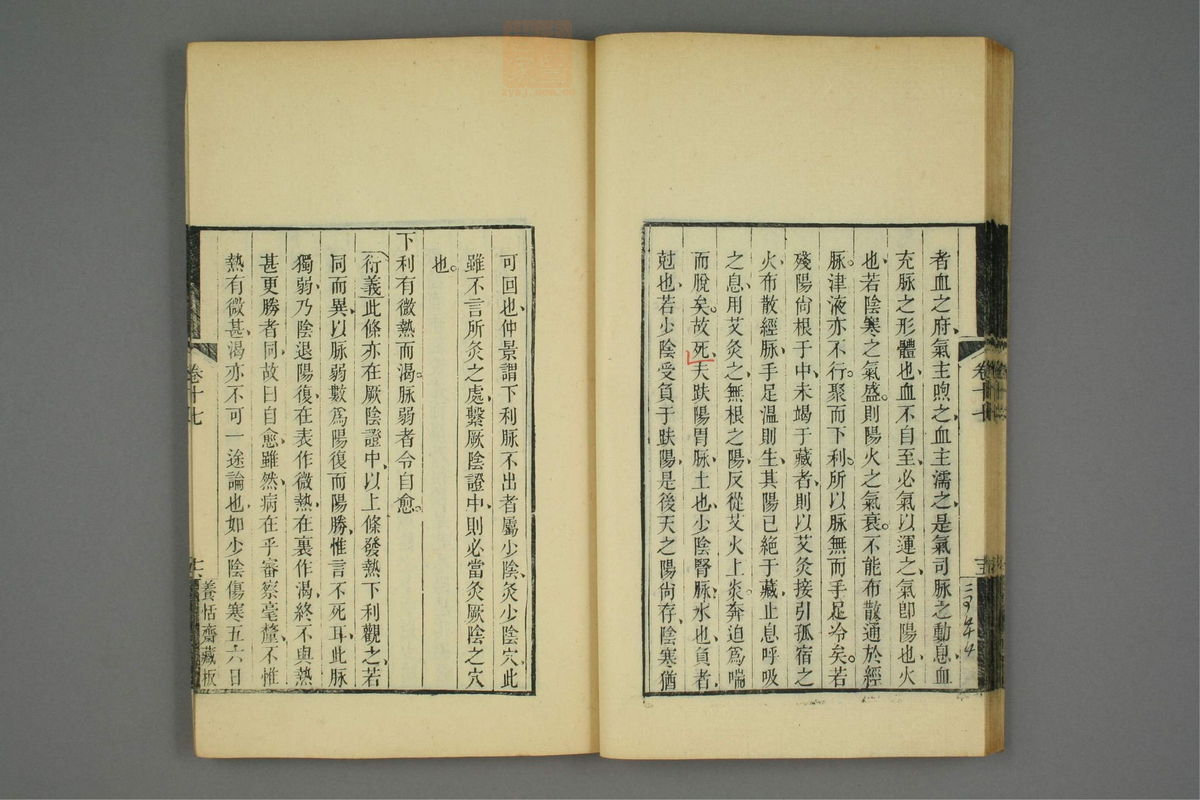 者血之府氣主煦之血主濡之是氣司脉之動息血
充脉之形體也血不自至必氣以運之氣卽陽也火
也若陰寒之氣盛則陽火之氣衰不能布散通於經
脉津液亦不行聚而下利所以脉無而手足冷矣若
殘陽尙根于中未竭于藏者則以艾灸接引孤宿之
火布散經脉手足溫則生其陽已絕于藏止息呼吸
之息用艾灸之無根之陽反從艾火上炎奔迫爲喘
而脫矣故死夫趺陽胃脉土也少陰腎脉水也負者
尅也若少陰受負于趺陽是後天之陽尙存陰寒猶
卷十七
可回也仲景謂下利脉不出者屬少陰灸少陰穴此
雖不言所灸之處繫厥陰證中則必當灸厥陰之穴
也
下利有微熱而渴脉弱者令自愈
衍義此條亦在厥陰證中以上條發熱下利觀之若
同而異以脉弱數爲陽復而陽勝惟言不死耳此脉
獨弱乃陰退陽復在表作微熱在裏作渴終不與熱
甚更勝者同故曰自愈雖然病在乎審察毫釐不惟
熱有微甚渴亦不可一途論也如少陰傷寒五六日
卷十七
十六
養恬齋藏板